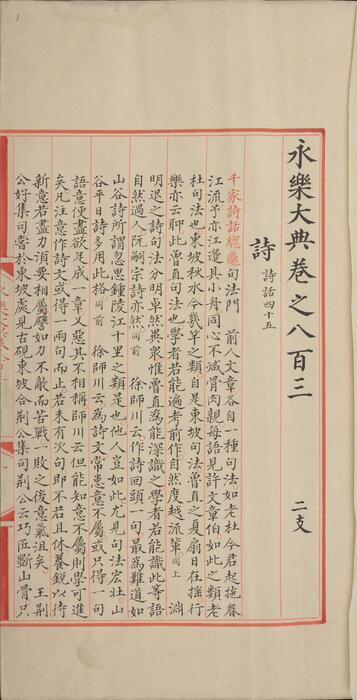 永樂大典卷之八百三 二支
詩 詩話四十五
千家詩話總龜句法門 前人文章各自一種句法如老杜今君起拖春
江流予亦江邊具小舟同心不減骨肉親每語見許文章伯如此之類老
杜句法也東坡秋水今幾竿之類自是東坡句法魯直之夏扇日在搖行
樂亦云聊此魯直句法也學者若能遍考前作自然度越流輩同上 淵
明退之詩句法分明卓然異衆惟魯直為能深識之學者若能識此等語
自然過人阮嗣宗詩亦然同前 徐師川云作詩回頭一句最為難道如
山谷詩所謂忽思鍾陵江十里之類是也他人豈如此尤見句法宏壯山
谷平日詩多用此格同前 徐師川云為詩文常患意不屬或只得一句
語意便盡欲足成一章又惡其不相稱師川云但能知意不屬則學可進
矣凡注意作詩文或得一兩句而止若未有次句即不若且休養銳以待
新意若盡力須要相屬譬如力不敵而苦戰一敗之後意氣沮矣 王荆
公好集句嘗於東坡處見古硯東坡令荆公集句荆公云巧匠斲山骨只